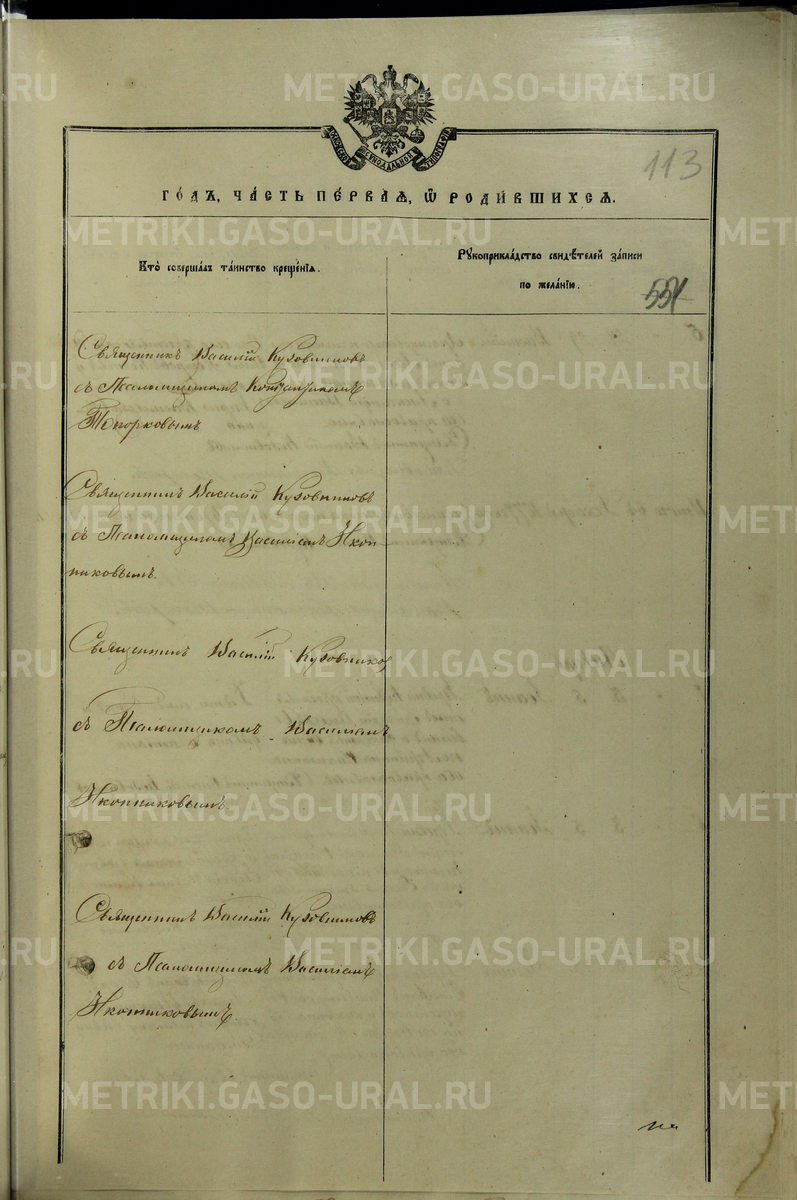 113
МОСКОВСКОЙ СѴНОДАЛЬНОЙ ТИПОГРАФІИ
ГО́ДЪ, ЧА́СТЬ ПЕ́РВАѦ, Ѡ҆ РОДИ́ВШИХСѦ.
Кто̀ соверша́лъ та́инство креще́нїѧ.
Рꙋкоприкла́дство свидѣ́телей за́писи
по жела́нїю.
551
Священникъ Василій Кузовниковъ
съ Псаломщикомъ
Топорковымъ
Священникъ Василій Кузовниковъ
съ Псаломщикомъ Василіемъ Икон-
никовымъ.
Священникъ Василій Кузовников
съ Псаломщикомъ Василіемъ
Иконниковымъ.
Священникъ Василій Кузовниковъ
съ Псаломщикомъ Василіемъ
Иконниковымъ.
METRIKI.GASO-URAL.RU